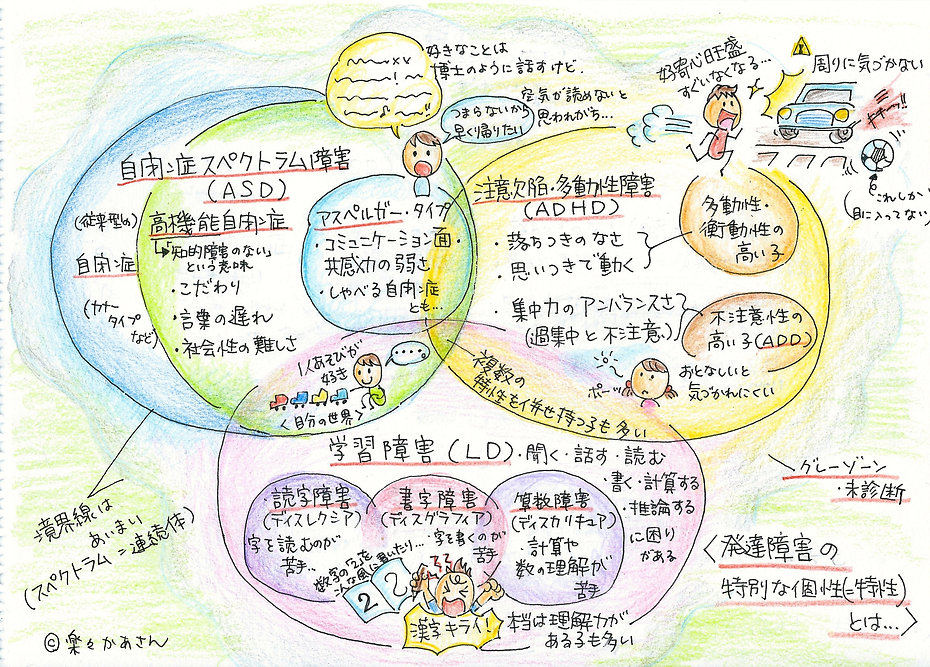 好きなことは
博士のように話すけど、
空気が読めないと
思われがち…
つまらないから
早く帰りたい
好奇心旺盛
すぐいなくなる…
周りに気づかない
キキーッ!!
これしか
目に入ってない
自閉症スペクトラム障害
(ASD)
(従来型の)
自閉症
(カナー
タイプ
など)
高機能自閉症
「知的障害のない」
という意味
・こだわり
・言葉の遅れ
・社会性の難しさ
アスペルガー・タイプ
・コミュニケーション面・
共感力の弱さ
・しゃべる自閉症
とも…
1人あそびが
好き
<自分の世界>
注意欠陥・多動性障害
(ADHD)
・落ちつきのなさ
・思いつきで動く
・集中力のアンバランスさ
(過集中と不注意)
多動性・
衝動性の
高い子
不注意性の
高い子(ADD)
おとなしいと
気づかれにくい
ポーッ
複数の
特性を併せ持つ子も多い
学習障害(LD)
・聞く・話す・読む
・書く・計算する
・推論する
に困り
がある
・読字障害
(ディスレクシア)
字を読むのが
苦手
・書字障害
(ディスグラフィア)
・字を書くのが
苦手
数字の「2」を
こんな風に書いたり…
2
漢字キライ!
算数障害
(ディスカリキュア)
・計算や
数の理解が
苦手
本当は理解力が
ある子も多い
境界線は
あいまい
(スペクトラム=連続体)
グレーゾーン
・未診断
<発達障害の
特別な個性(=特性)
とは…>
©楽々かあさん